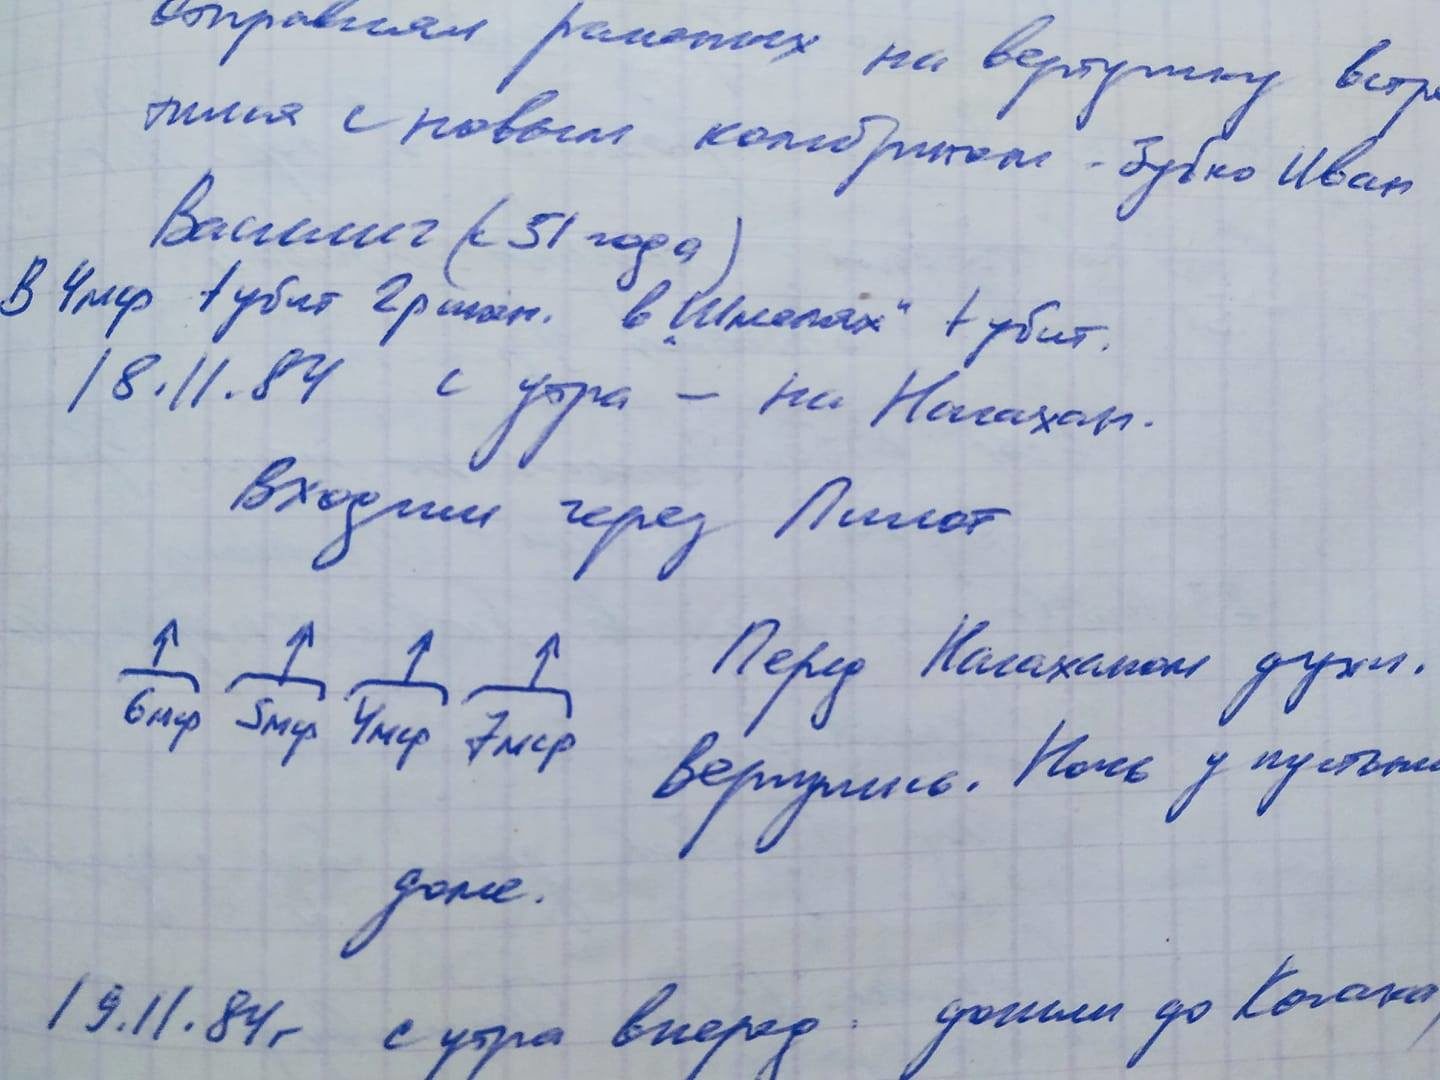 отправлял раненых на вертушку встре
тился с новым комбригом - Зубко Иван
Васильич (с 51 года)
В 4мср 1 убит 2 ранен. в "Шмелях" 1 убит.
18.11.84 с утра – на Нагахан.
Входим через Пилот
6мср 5мср 4мср 7мср
Перед Нагаханом духи.
Вернулись. Ночь у пустом
доме.
19.11.84г с утра вперед. дошли до